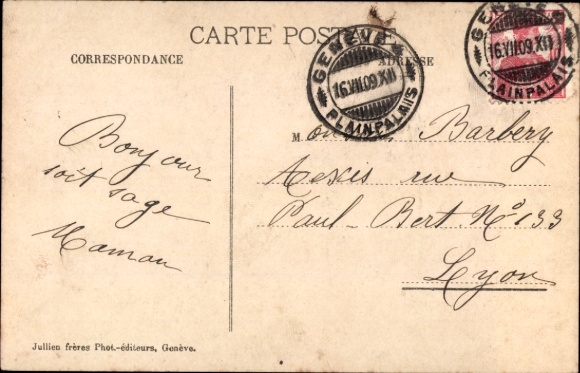 CARTE POSTALE
CORRESPONDANCE
ADRESSE
GENÈVE
16.VII.09.XII
PLAINPALAIS
GENÈVE
16.VII.09.XII
PLAINPALAIS
Bonjour
soit sage
Maman
Mon Barbery
rue
Paul-Bert. No 133
Lyon
Jullien frères Phot.-éditeurs, Genève.